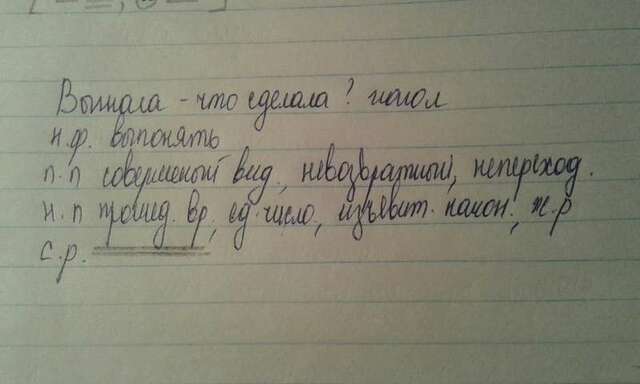 Выгнала - что сделала? глагол
н.ф. выпонять
п.п совершеный вид, невозвратный, непереход.
н.п прошед. вр, ед. число, изъявит. након., ж.р
с.р.